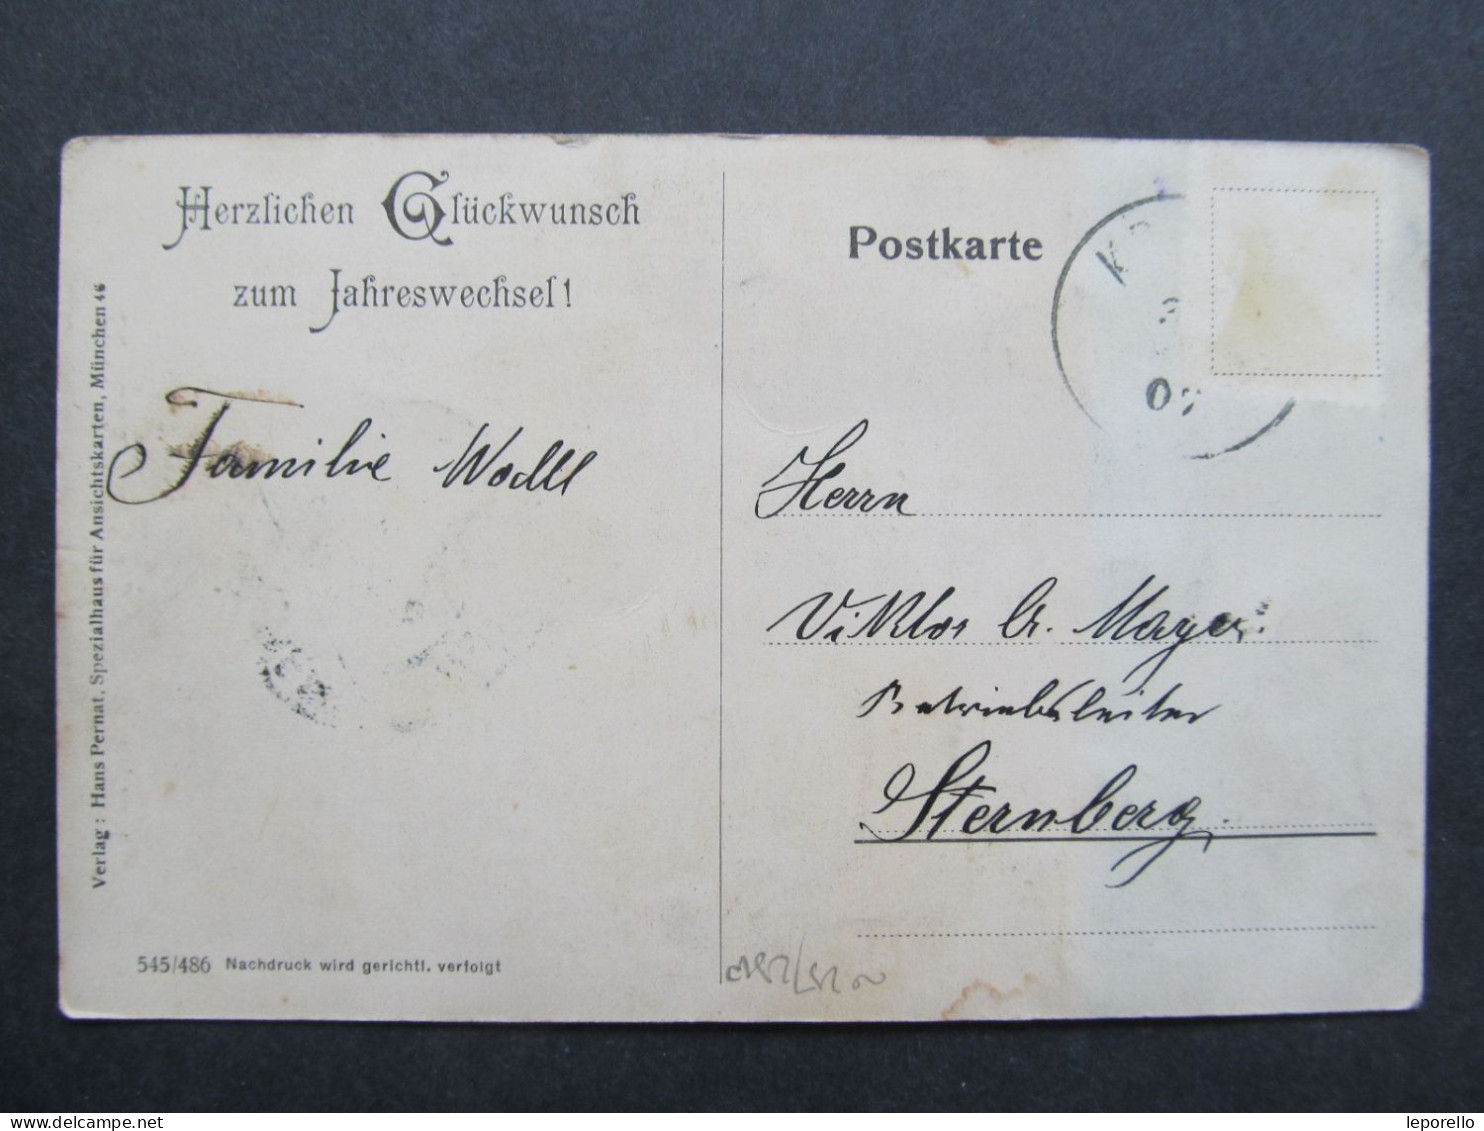 Herzlichen Glückwunsch
zum Jahreswechsel!
Familie Wodll
Verlag: Hans Pernat, Spezialhaus für Ansichtskarten, München 46
545/486 Nachdruck wird gerichtl. verfolgt
Postkarte
Herrn
Viktor A. Mayer
Betriebsleiter
Sternberg
delcampe.net
leporello